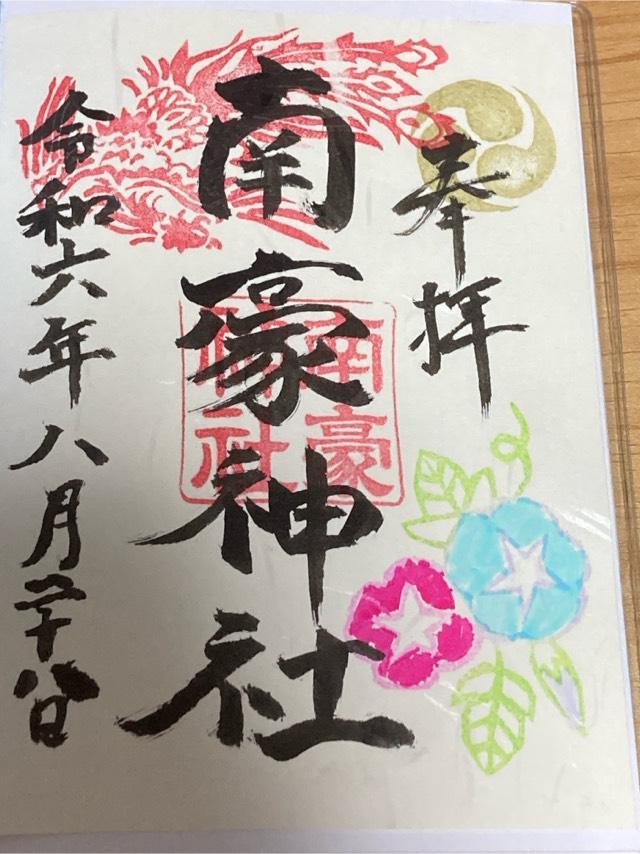 奉拝
南豪神社
南豪
神社
令和六年八月二十八日